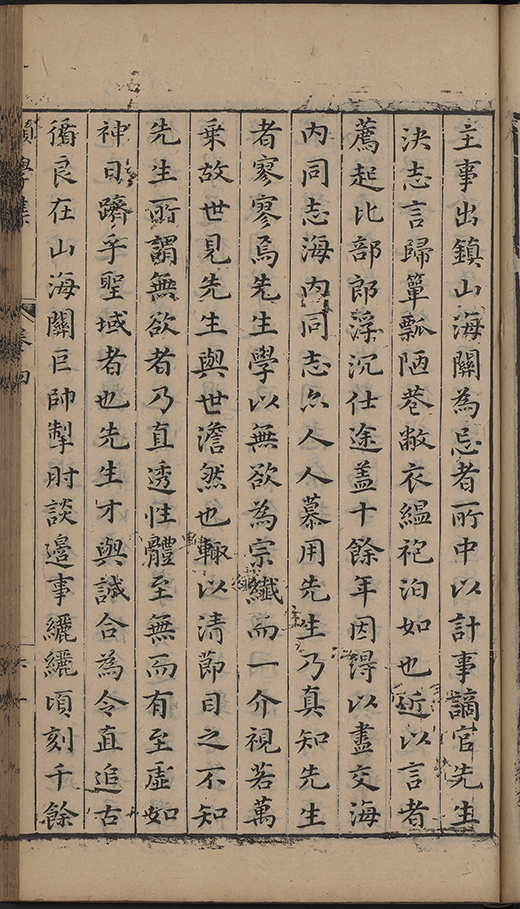 主事出鎮山海關為忌者所中以計事謫官先生
決志言歸簞瓢陋巷敝衣縕袍泊如也近以言者
薦起比部郎浮沉仕途盖十餘年因得以盡交海
内同志海内同志亦人人慕用先生乃真知先生
者寥寥焉先生學以無欲為宗纖而一介視若萬
乗故世見先生與世澹然也輙以清節目之不知
先生所謂無欲者乃直透性體至無而有至虛如
神日躋乎聖域者也先生才與誠合為令直追古
循良在山海關巨帥掣肘談邉事纚纚頃刻千餘
學集 卷四